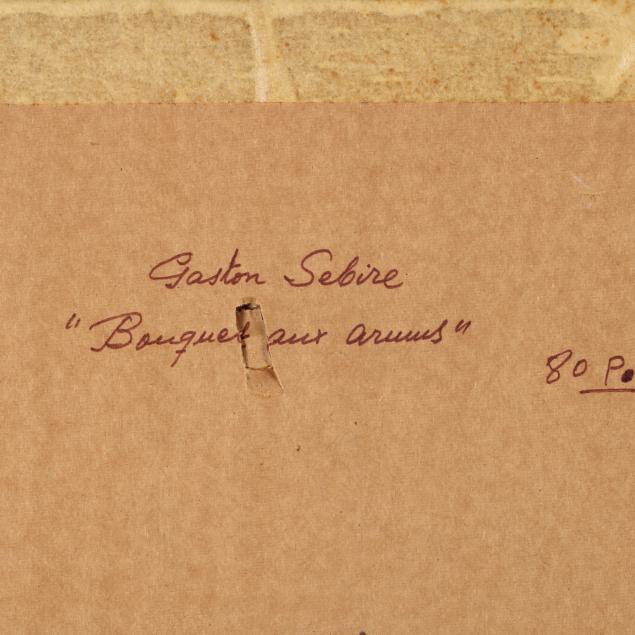 Gaston Sebire
"Bouquet aux arums"
80 P.